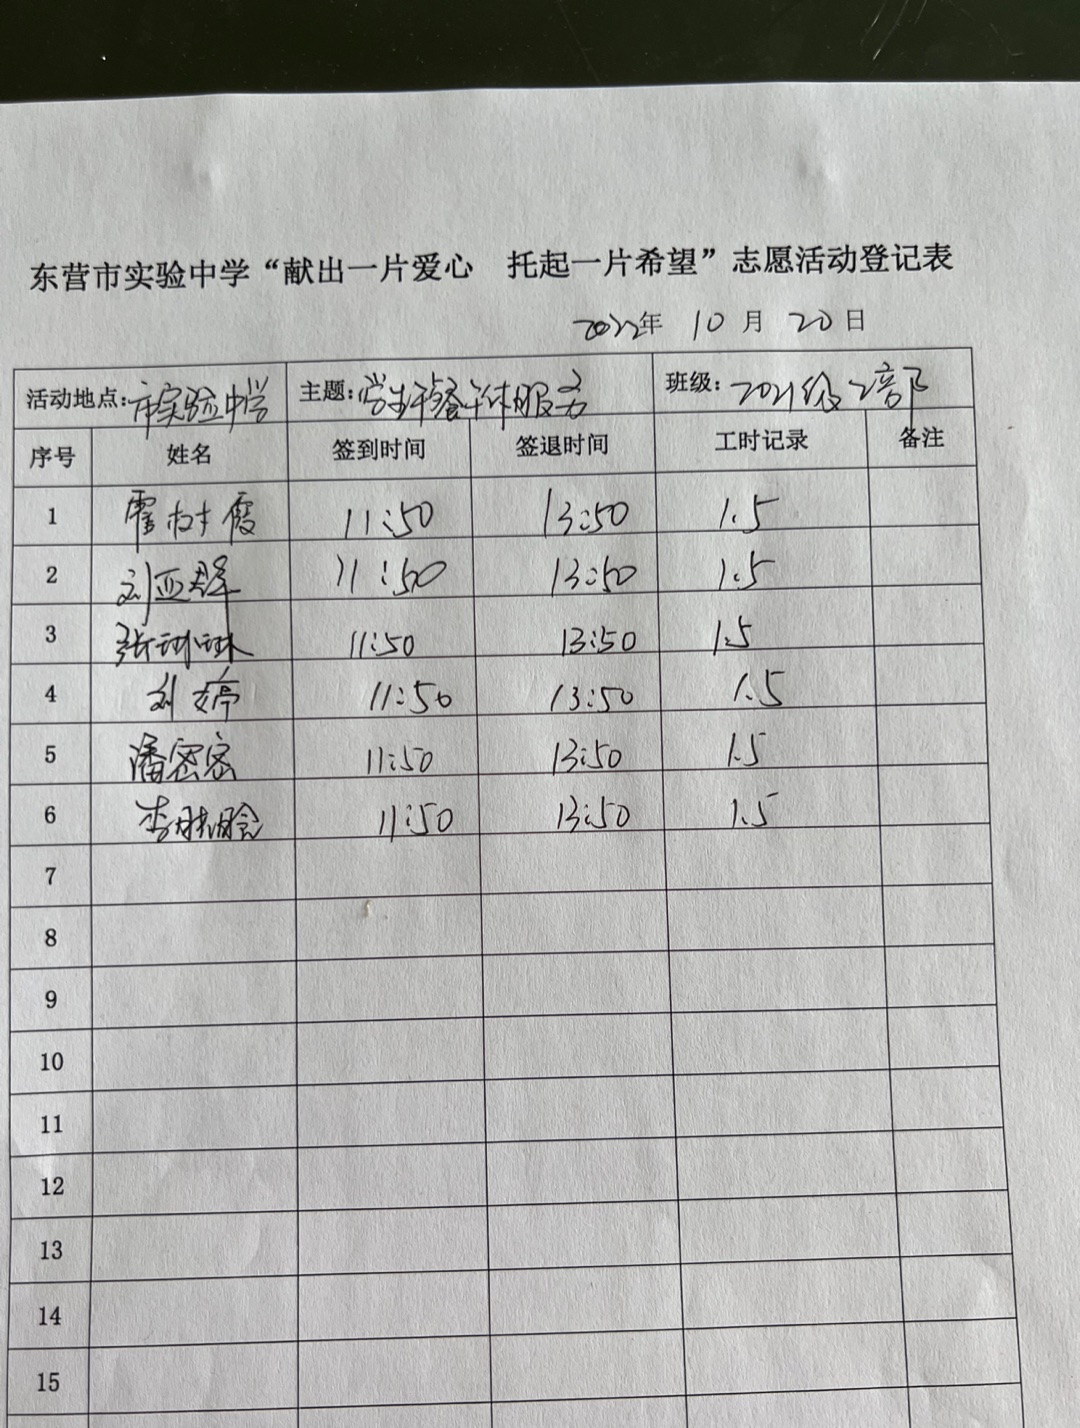 东营市实验中学“献出一片爱心 托起一片希望”志愿活动登记表
2022年 10月 20日
活动地点:市实验中学 主题:学生午餐午休服务 班级:2021级2部
序号 姓名 签到时间 签退时间 工时记录 备注
1 霍树霞 11:50 13:50 1.5
2 刘亚翠 11:50 13:50 1.5
3 张琳琳 11:50 13:50 1.5
4 刘婷 11:50 13:50 1.5
5 潘密密 11:50 13:50 1.5
6 李 11:50 13:50 1.5
7
8
9
10
11
12
13
14
15